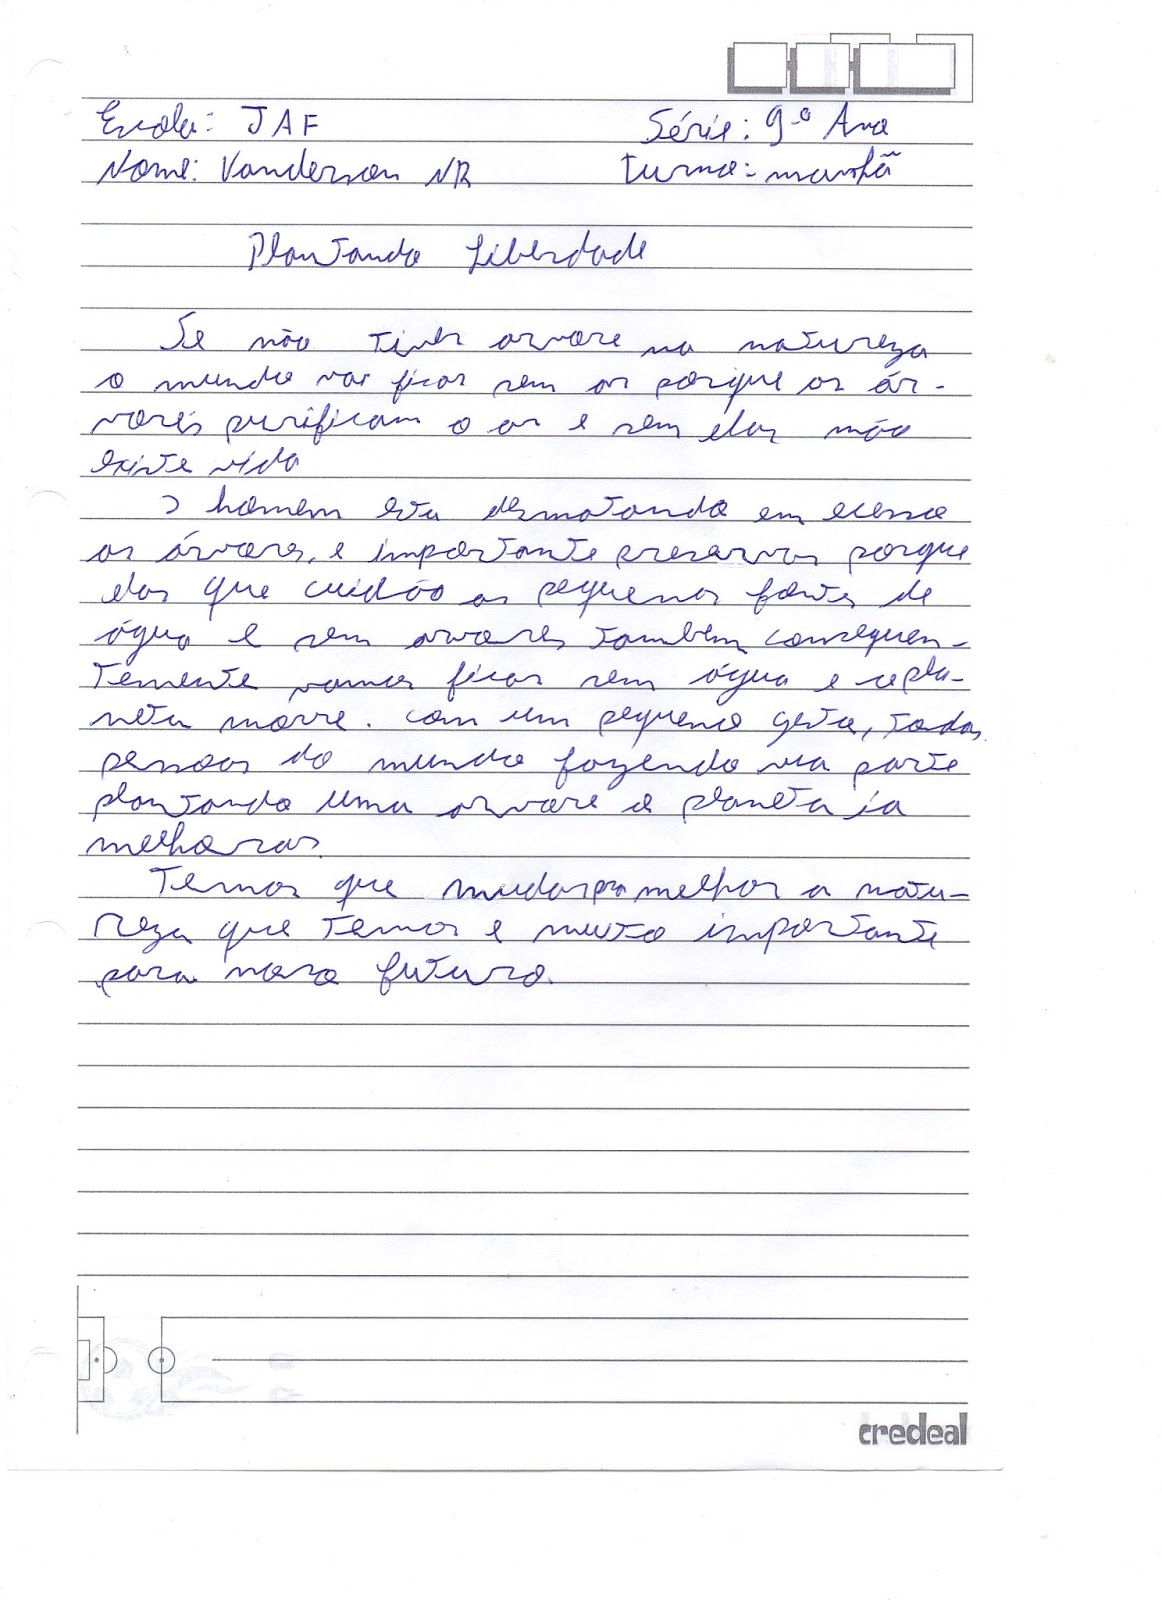 Escola: JAF Série: 9º Ano
Nome: Vanderson NR Turma: manhã
Plantando Liberdade
Se não tinh arvore na natureza
o mundo vai ficar sem ar porque as ár-
vores purificam o ar e sem elas não
existe vida
O homem esta desmatando em ecesso
as árvores, e importante preservar porque
elas que cuidão as pequenas fontes de
água e sem arvores também consequen-
temente vamos ficar sem água e o pla-
neta morre. com um pequeno gesto, todas
pessoas do mundo fazendo sua parte
plantando uma arvore o planeta ia
melhorar.
Temos que mudar pra melhor a natu-
reza que temos e muito importante
para noso futuro.
credeal